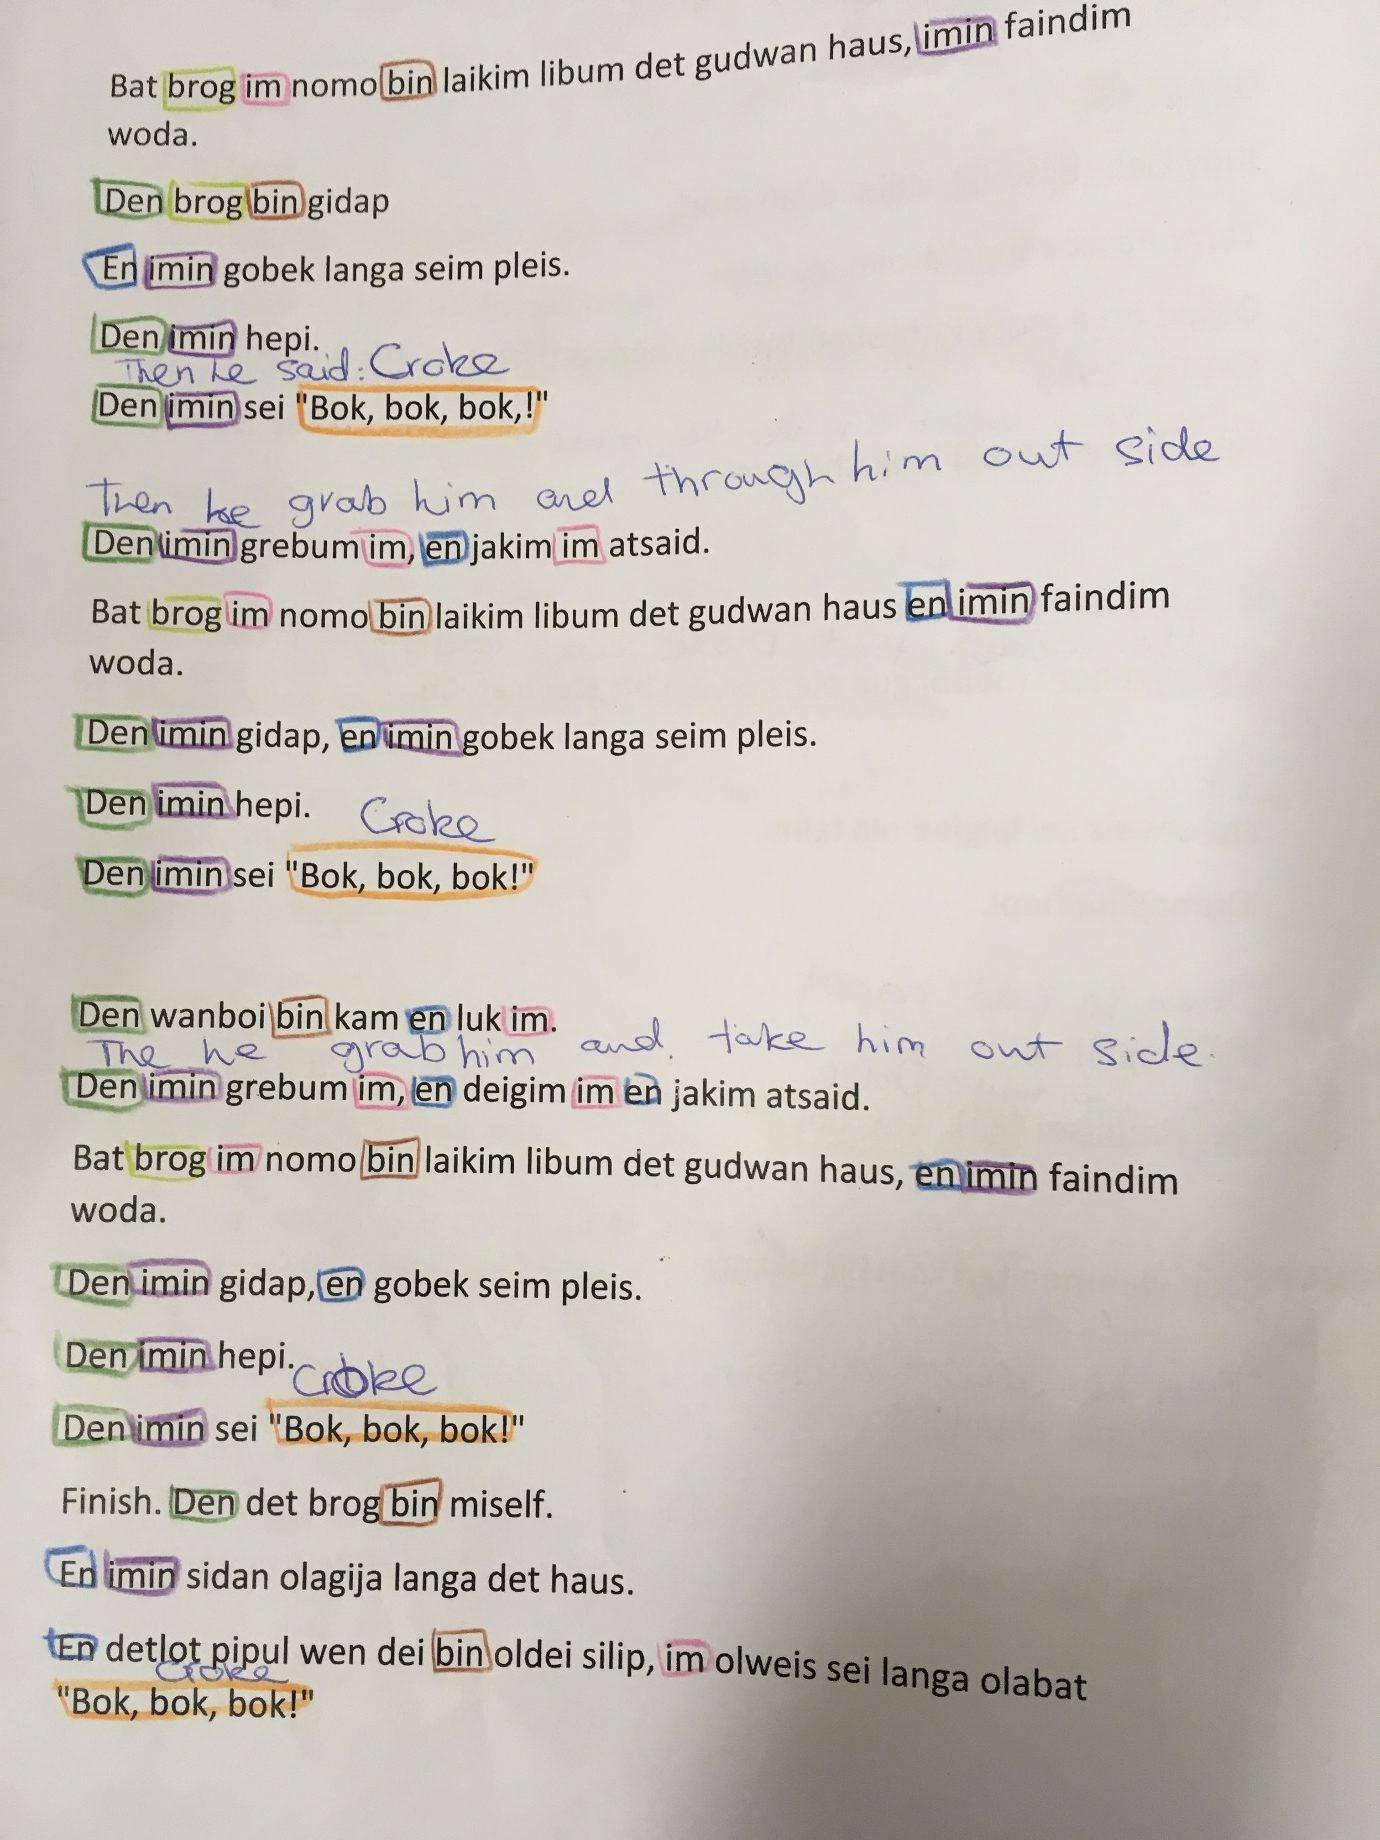 Bat brog im nomo bin laikim libum det gudwan haus, imin faindim
woda.
Den brog bin gidap
En imin gobek langa seim pleis.
Den imin hepi.
Then he said: Croke
Den imin sei "Bok, bok, bok,!"
Then he grab him and through him out side
Den imin grebum im, en jakim im atsaid.
Bat brog im nomo bin laikim libum det gudwan haus en imin faindim
woda.
Den imin gidap, en imin gobek langa seim pleis.
Den imin hepi.
Croke
Den imin sei "Bok, bok, bok!"
Den wanboi bin kam en luk im.
The he grab him and. take him out side.
Den imin grebum im, en deigim im en jakim atsaid.
Bat brog im nomo bin laikim libum det gudwan haus, en imin faindim
woda.
Den imin gidap, en gobek seim pleis.
Den imin hepi.
Croke
Den imin sei "Bok, bok, bok!"
Finish. Den det brog bin miself.
En imin sidan olagija langa det haus.
En detlot pipul wen dei bin oldei silip, im olweis sei langa olabat
Croke
"Bok, bok, bok!"